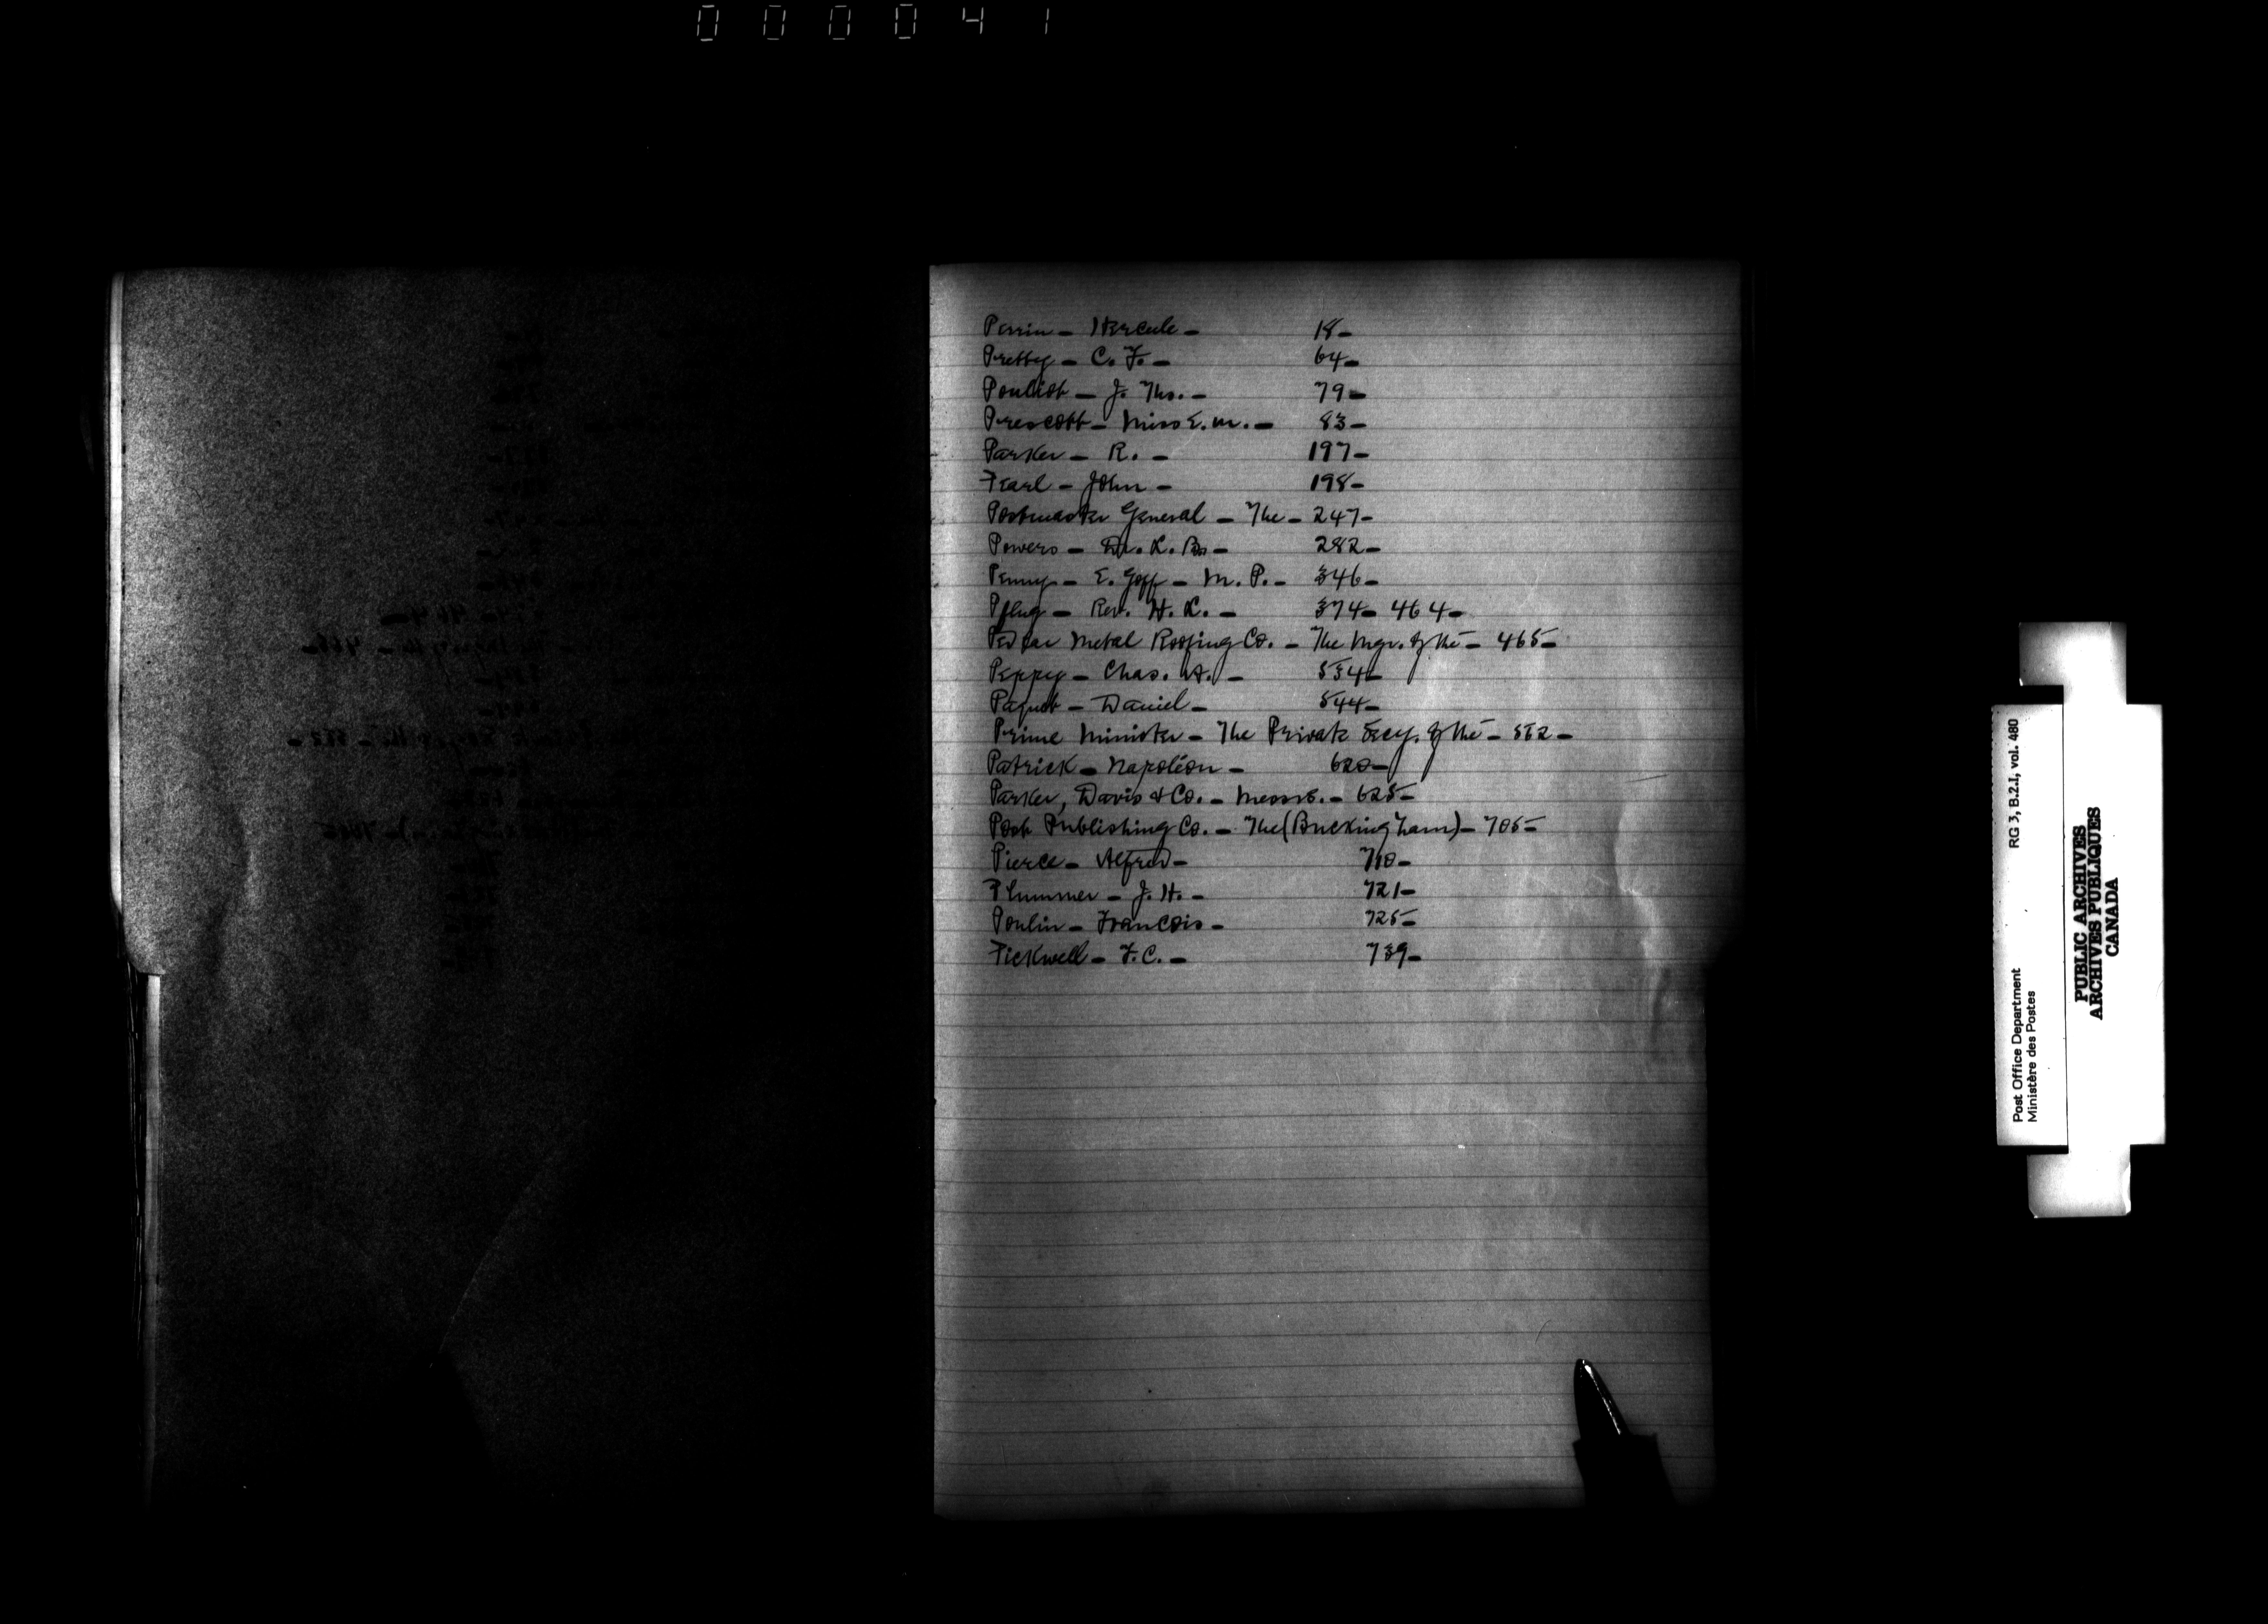 000041
Perrin - Hercule - 18 -
Pretty - C. F. - 64 -
Pouliot - J. Ths. - 79 -
Prescott - Miss E. M. - 83 -
Parker - R. - 197 -
Pearl - John - 198 -
Postmaster General - The - 247 -
Powers - Dr. L. B. - 282 -
Penny - E. Goff - M. P. - 346 -
Pflug - Rev. H. L. - 374 - 464 -
Pedlar Metal Roofing Co. - The Mgr. of the - 465 -
Peppy - Chas. A. - 534 -
Paquet - Daniel - 544 -
Prime Minister - The Private Secy. of the - 552 -
Patrick - Napoléon - 620 -
Parker, Davis & Co. - Messrs. - 625 -
Post Publishing Co. - The (Buckingham) - 705 -
Pierce - Alfred - 710 -
Plummer - J. H. - 721 -
Poulin - Francois - 725 -
Pickwell - F. C. - 739 -
Post Office Department RG 3, B.2.I, vol. 480
Ministère des Postes
PUBLIC ARCHIVES
ARCHIVES PUBLIQUES
CANADA